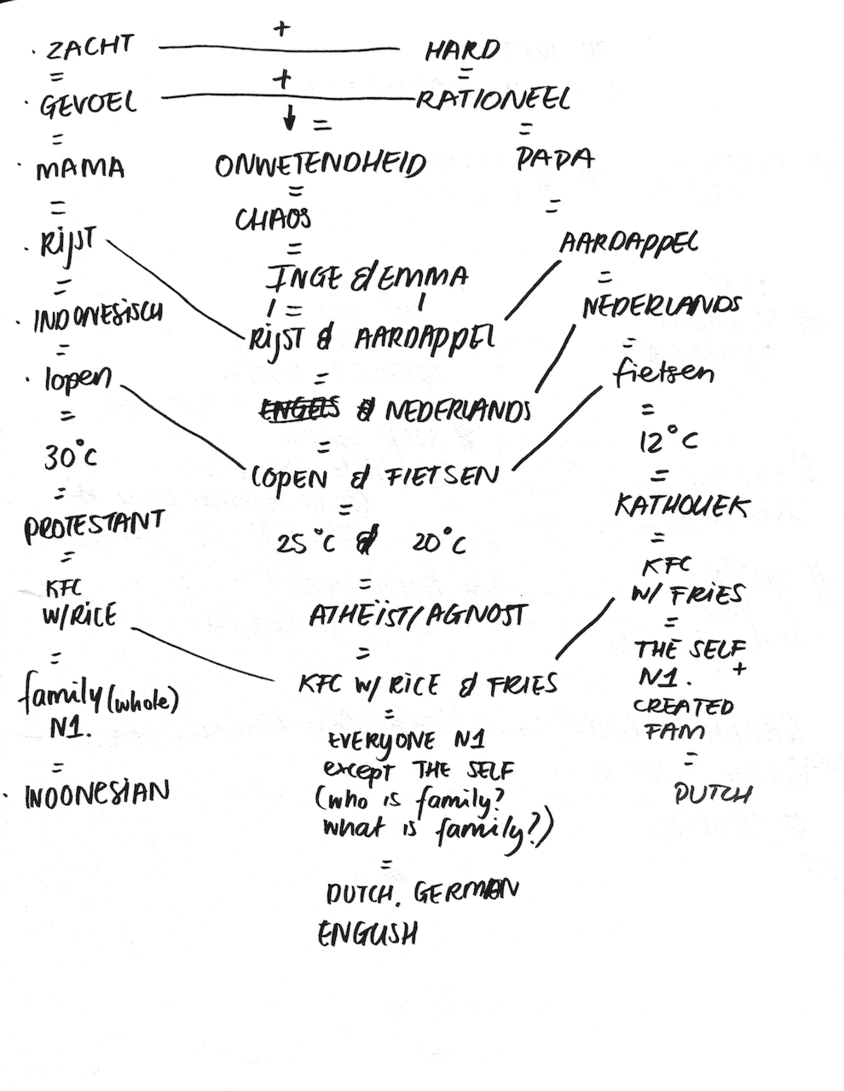 · ZACHT + HARD
= =
· GEVOEL + RATIONEEL
= ↓ = =
· MAMA ONWETENDHEID PAPA
= = =
CHAOS
· Rijst = AARDAPPEL
= INGE & EMMA =
· INDONESISCH = NEDERLANDS
= Rijst & AARDAPPEL =
· lopen = fietsen
= ENGELS & NEDERLANDS =
30°C = 12°C
= LOPEN & FIETSEN =
PROTESTANT = KATHOLIEK
= 25°C & 20°C =
KFC = KFC
W/RICE ATHEÏST/AGNOST W/ FRIES
= = =
family (whole) KFC W/ RICE & FRIES THE SELF
N1. = N1. +
= EVERYONE N1 CREATED
· INDONESIAN except THE SELF FAM
(who is family? =
what is family?) DUTCH
=
DUTCH, GERMAN
ENGLISH